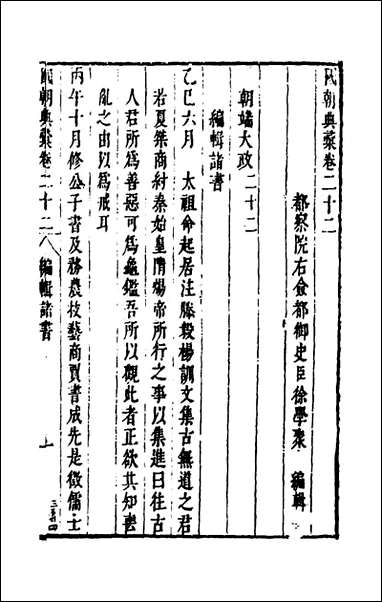 代朝典彙卷二十二
都察院右僉都御史臣徐學聚 編輯
朝端大政二十二
編輯諸書
乙巳六月 太祖命起居注滕毅楊訓文集古無道之君
若夏桀商紂秦始皇隋煬帝所行之事以集進曰往古
人君所為善惡可為龜鑑吾所以觀此者正欲其知喪
亂之由以為戒耳
丙午十月修公子書及務農技藝商賈書成先是徵儒士
朝典彙卷二十二 編輯諸書 上